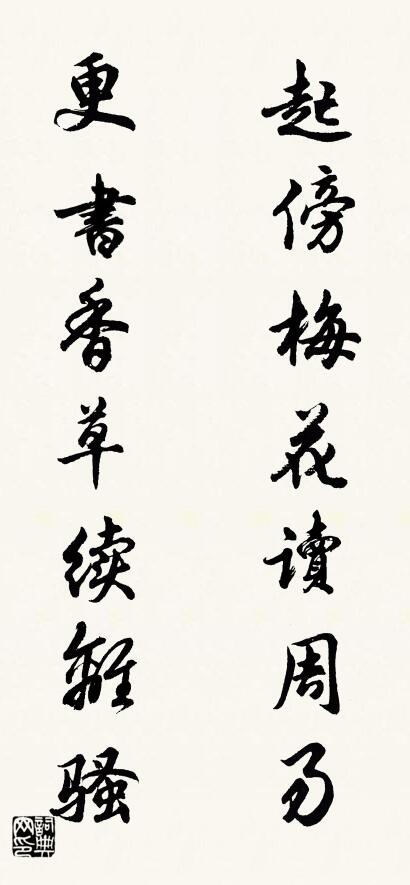 起傍梅花讀周易
更書香草续離骚
詞典网印